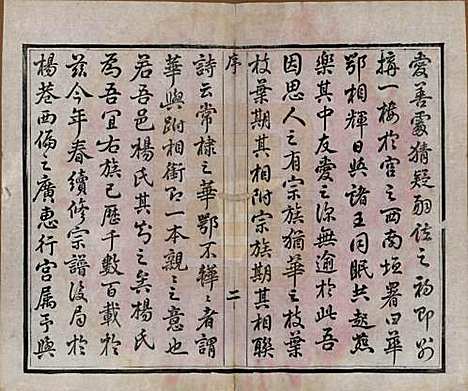 愛善處猜疑弱位之初即別
搆一樓於宮之西南垣署曰華
鄂相輝日與諸王同眠共起燕
樂其中友愛之深無逾於此吾
因思人之有宗族猶華之枝葉
枝葉期其相附宗族期其相聯
序
二
詩云常棣之華鄂不韡韡之者謂
華與跗相銜即一本親親之意也
若吾邑楊氏其知之矣楊氏
為吾宜右族已歷千數百載於
茲今年春續修宗譜設局於
楊巷西偏之廣惠行宮屬予與